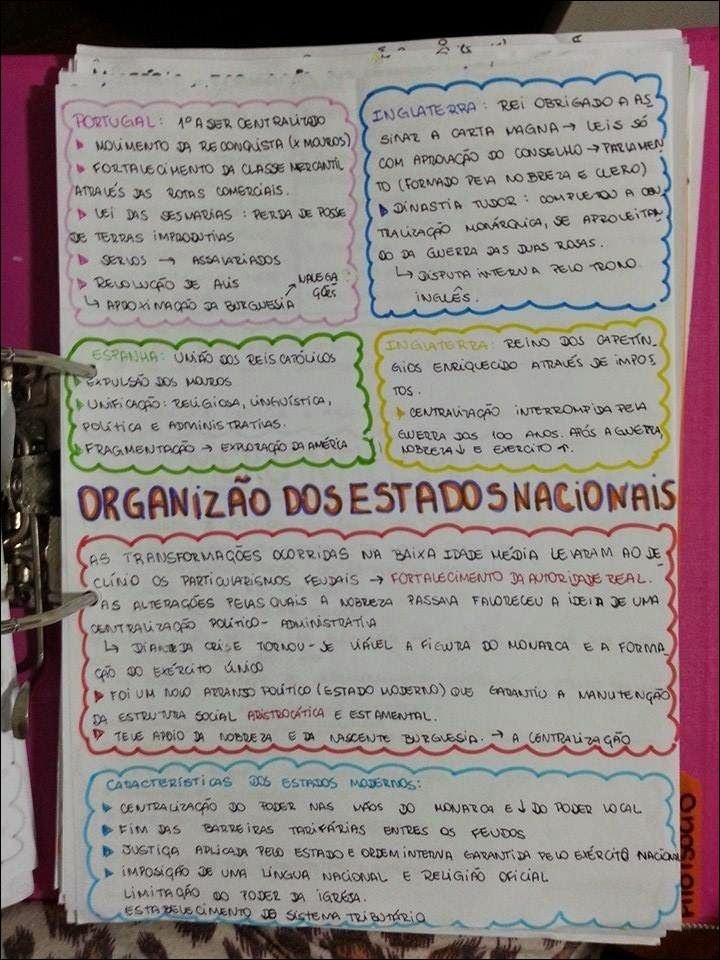 PORTUGAL: 1º A SER CENTRALIZADO
MOVIMENTO DA RECONQUISTA (X MOUROS)
FORTALECIMENTO DA CLASSE MERCANTIL
ATRAVÉS DAS ROTAS COMERCIAIS.
LEI DAS SESMARIAS: PERDA DE POSSE
DE TERRAS IMPRODUTIVAS
SERVOS → ASSALARIADOS
REVOLUÇÃO DE AVIS
↳ APROXIMAÇÃO DA BURGUESIA ↗ NAVEGA
ÇÕES
INGLATERRA: REI OBRIGADO A AS
SINAR A CARTA MAGNA → LEIS SÓ
COM APROVAÇÃO DO CONSELHO → PARLAMEN
TO (FORMADO PELA NOBREZA E CLERO)
DINASTIA TUDOR: COMPLETOU A CEN
TRALIZAÇÃO MONÁRQUICA, SE APROVEITAN
DO DA GUERRA DAS DUAS ROSAS.
↳ DISPUTA INTERNA PELO TRONO
INGLÊS.
ESPANHA: UNIÃO DOS REIS CATÓLICOS
EXPULSÃO DOS MOUROS
UNIFICAÇÃO: RELIGIOSA, LINGUÍSTICA,
POLÍTICA E ADMINISTRATIAS.
FRAGMENTAÇÃO → EXPLORAÇÃO DA AMÉRICA
INGLATERRA: REINO DOS CAPETÍN
GIOS ENRIQUECIDO ATRAVÉS DE IMPOS
TOS.
CENTRALIZAÇÃO INTERROMPIDA PELA
GUERRA DOS 100 ANOS. APÓS A GUERRA,
NOBREZA ↓ E EXERCITO ↑.
ORGANIZÃO DOS ESTADOS NACIONAIS
AS TRANSFORMAÇÕES OCORRIDAS NA BAIXA IDADE MÉDIA LEVARAM AO DE
CLÍNIO OS PARTICULARISMOS FEUDAIS → FORTALECIMENTO DA AUTORIDADE REAL.
AS ALTERAÇÕES PELAS QUAIS A NOBREZA PASSAVA FAVORECEU A IDEIA DE UMA
CENTRALIZAÇÃO POLÍTICO-ADMINISTRATIVA
↳ DIANTE DA CRISE TORNOU-SE VIÁVEL A FIGURA DO MONARCA E A FORMA-
ÇÃO DO EXÉRCITO ÚNICO
FOI UM NOVO ARRANJO POLÍTICO (ESTADO MODERNO) QUE GARANTIU A MANUTENÇÃO
DA ESTRUTURA SOCIAL ARISTROCÁTICA E ESTAMENTAL.
TEVE APOIO DA NOBREZA E DA NASCENTE BURGUESIA. → A CENTRALIZAÇÃO
CARACTERÍSTICAS DOS ESTADOS MODERNOS:
CENTRALIZAÇÃO DO PODER NAS MÃOS DO MONARCA E ↓ DO PODER LOCAL
FIM DAS BARREIRAS TARIFÁRIAS ENTRES OS FEUDOS
JUSTIÇA APLICADA PELO ESTADO E ORDEM INTERNA GARANTIDA PELO EXÉRCITO NACIONAL
IMPOSIÇÃO DE UMA LÍNGUA NACIONAL E RELIGIÃO OFICIAL
LIMITAÇÃO DO PODER DA IGREJA.
ESTABELECIMENTO DE SISTEMA TRIBUTÁRIO